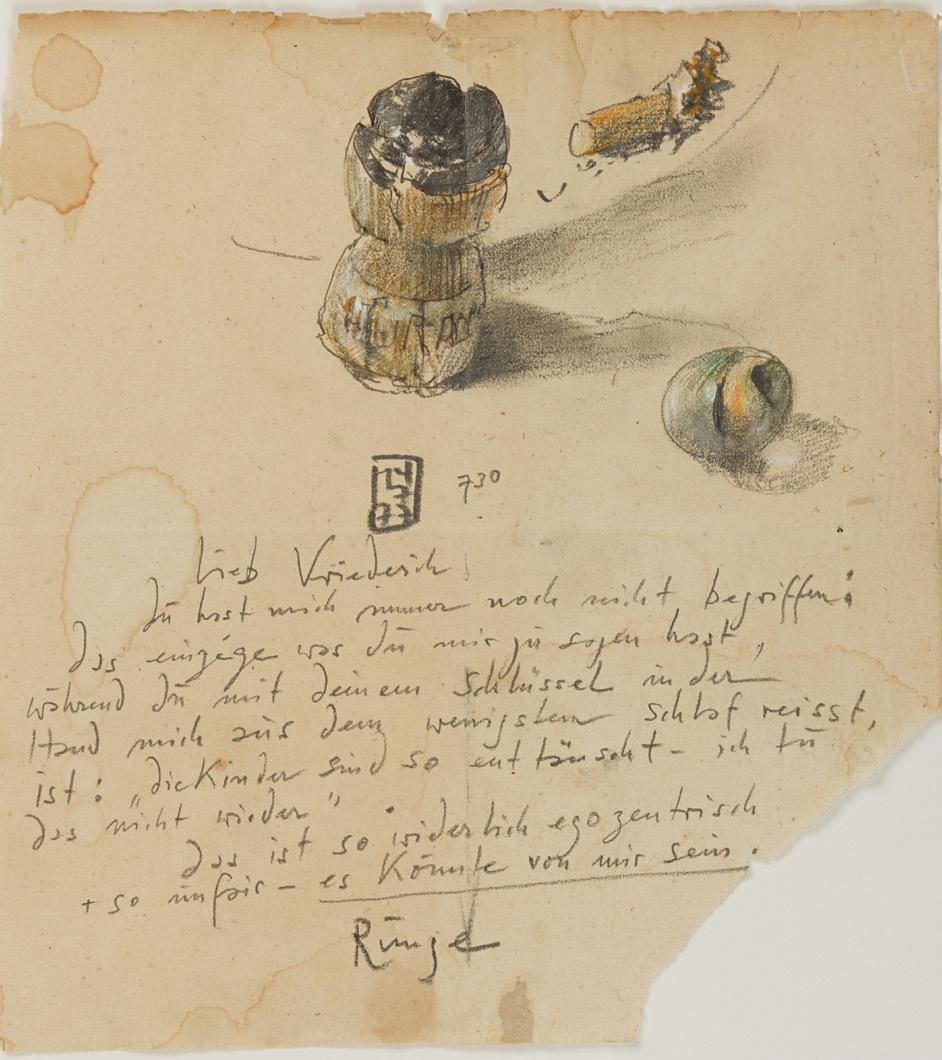 730
Lieb Vriederich
Du hast mich immer noch nicht begriffen:
das einzége was du mir zu sagen hast,
während du mit deinem Schlüssel in der
Hand mich aus dem wenigsten Schlaf reisst,
ist: „die Kinder sind so enttäuscht - ich tu
das nicht wieder"
das ist so widerlich egozentrisch
+ so unfair - es könnte von mir sein.
Runge